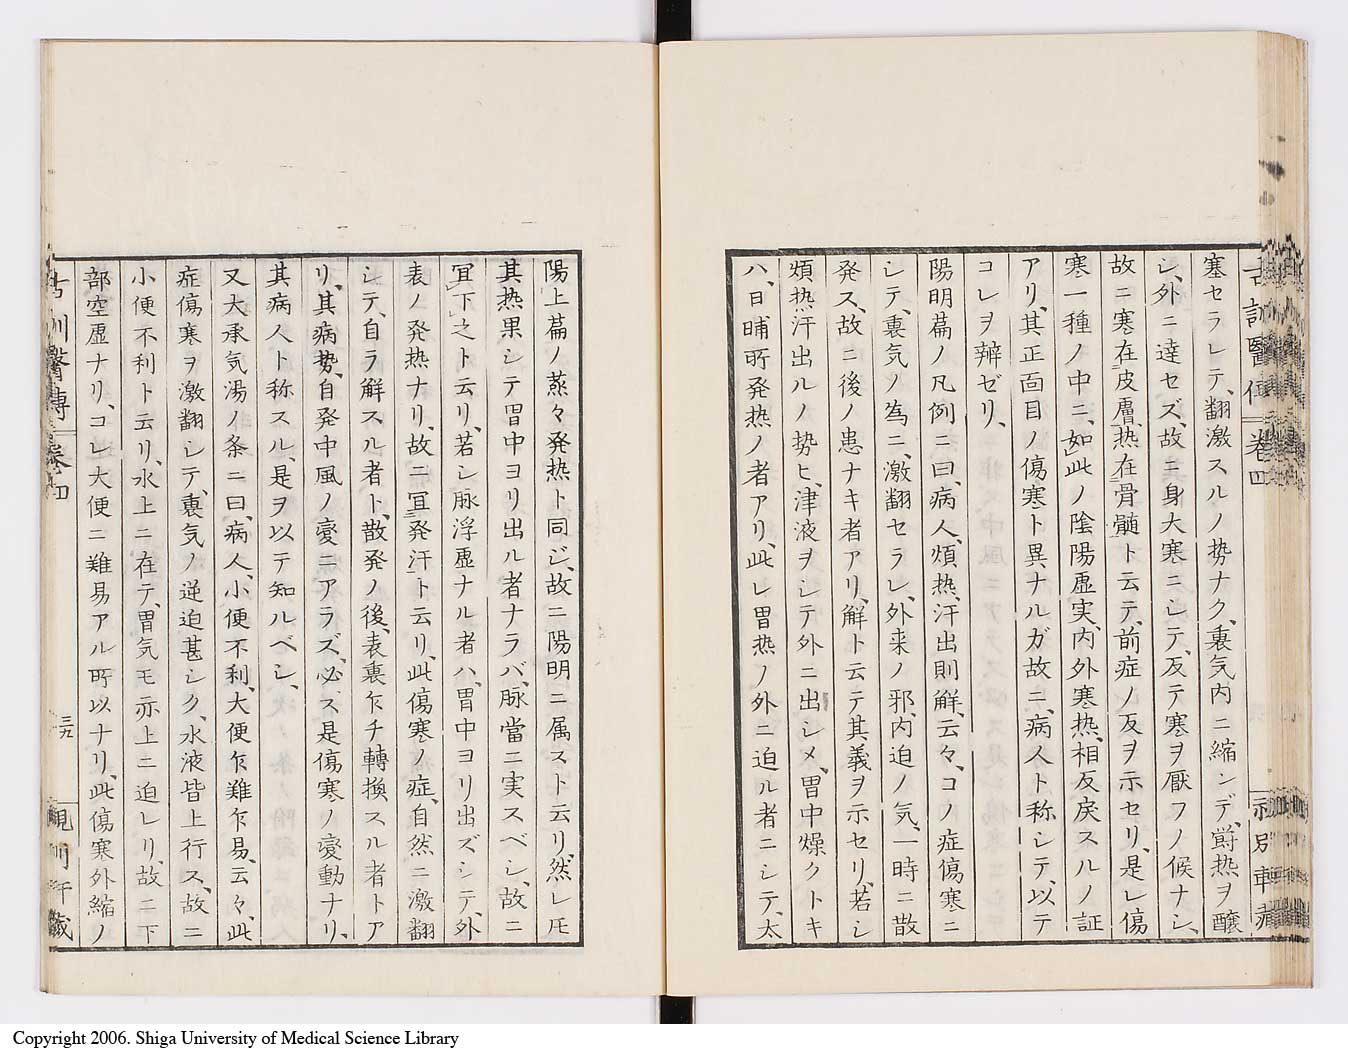 古訓醫傳 卷四
塞セラレテ、翻激スルノ势ナク、裏気内ニ縮ンデ、欝热ヲ釀
シ、外ニ達セズ、故ニ身大寒ニシテ、反テ寒ヲ厭フノ候ナシ、
故ニ寒在皮膚、热在骨髄ト云テ、前症ノ反ヲ示セリ、是レ傷
寒一種ノ中ニ、如此ノ陰陽虚実、内外寒热、相反戻スルノ証
アリ、其正面目ノ傷寒ト異ナルガ故ニ、病人ト称シテ、以テ
コレヲ辨ゼリ、
陽明篇ノ凡例ニ曰、病人、煩热、汗出則解、云々、コノ症傷寒ニ
シテ、裏気ノ為ニ、激翻セラレ、外来ノ邪、内迫ノ気、一時ニ散
発ス、故ニ後ノ患ナキ者アリ、解ト云テ其義ヲ示セリ、若シ
煩热汗出ルノ势ヒ、津液ヲシテ外ニ出シメ、胃中燥クトキ
ハ、日晡所発热ノ者アリ、此レ胃热ノ外ニ迫ル者ニシテ、太
陽上篇ノ蒸々発热ト同ジ、故ニ陽明ニ属スト云リ、然レ𪜈
其热果シテ胃中ヨリ出ル者ナラバ、脉當ニ実スベシ、故ニ
冝下之ト云リ、若シ脉浮虚ナル者ハ、胃中ヨリ出ズシテ、外
表ノ発热ナリ、故ニ冝発汗ト云リ、此傷寒ノ症、自然ニ激翻
シテ、自ラ解スル者ト、散発ノ後、表裏乍チ轉換スル者トア
リ、其病势、自発中風ノ変ニアラズ、必ス是傷寒ノ変動ナリ、
其病人ト称スル、是ヲ以テ知ルベシ、
又大承気湯ノ条ニ曰、病人、小便不利、大便乍難乍易、云々、此
症傷寒ヲ激翻シテ、裏気ノ逆迫甚シク、水液皆上行ス、故ニ
小便不利ト云リ、水上ニ在テ、胃気モ亦上ニ迫レリ、故ニ下
部空虚ナリ、コレ大便ニ難易アル所以ナリ、此傷寒外縮ノ
古訓醫傳 卷四
三五
Copyright 2006. Shiga University of Medical Science Library